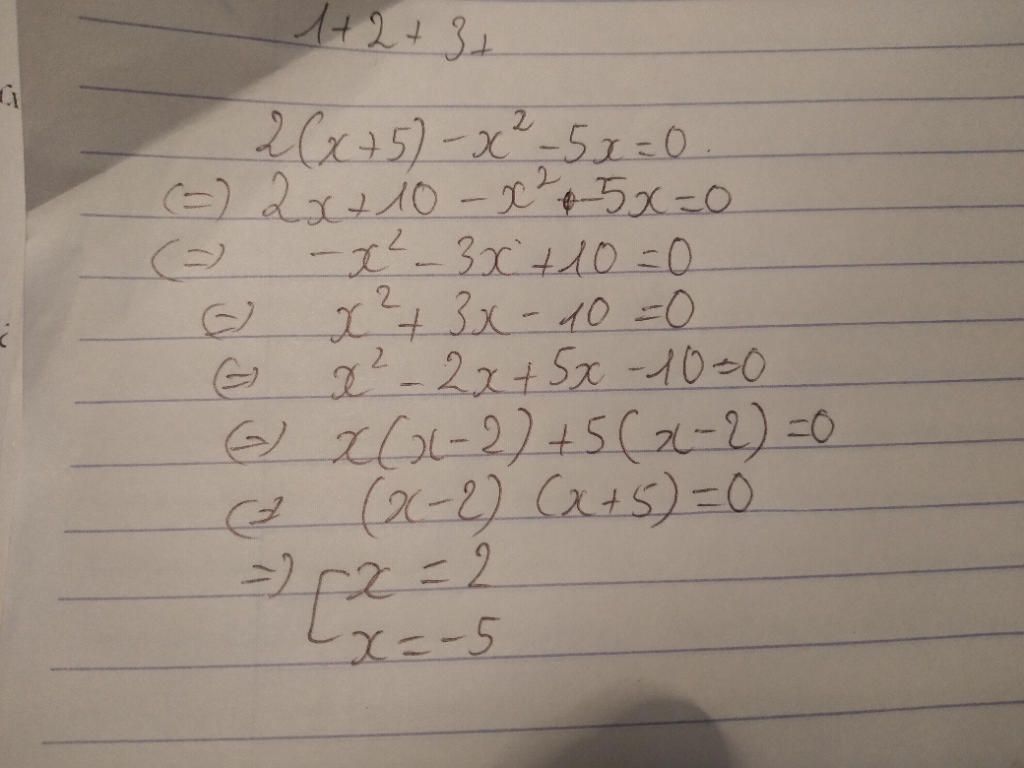 1+2+3+
2(x+5)-x²-5x=0.
(=) 2x+10-x²-5x=0
(=) -x²-3x+10=0
(=) x²+3x-10=0
(=) x²-2x+5x-10=0
(=) x(x-2)+5(x-2)=0
(=) (x-2)(x+5)=0
=) [x=2
x=-5